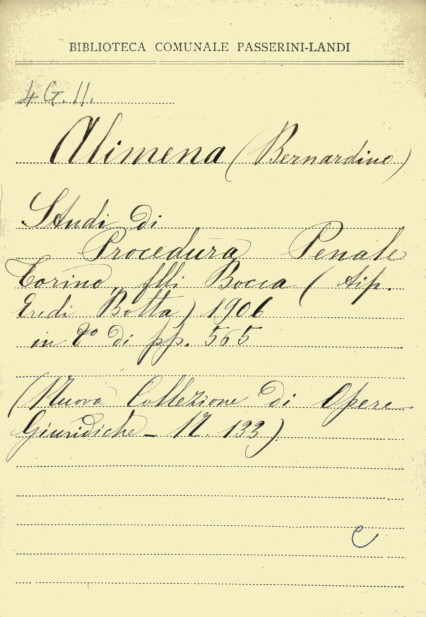 BIBLIOTECA COMUNALE PASSERINI-LANDI
4 G. 11.
Alimena (Bernardino)
Studi di
Procedura Penale
Torino, flli Bocca (tip.
Eredi Botta) 1906
in 8° di pp. 565
(Nuova Collezione di Opere
Giuridiche - N. 133)
e